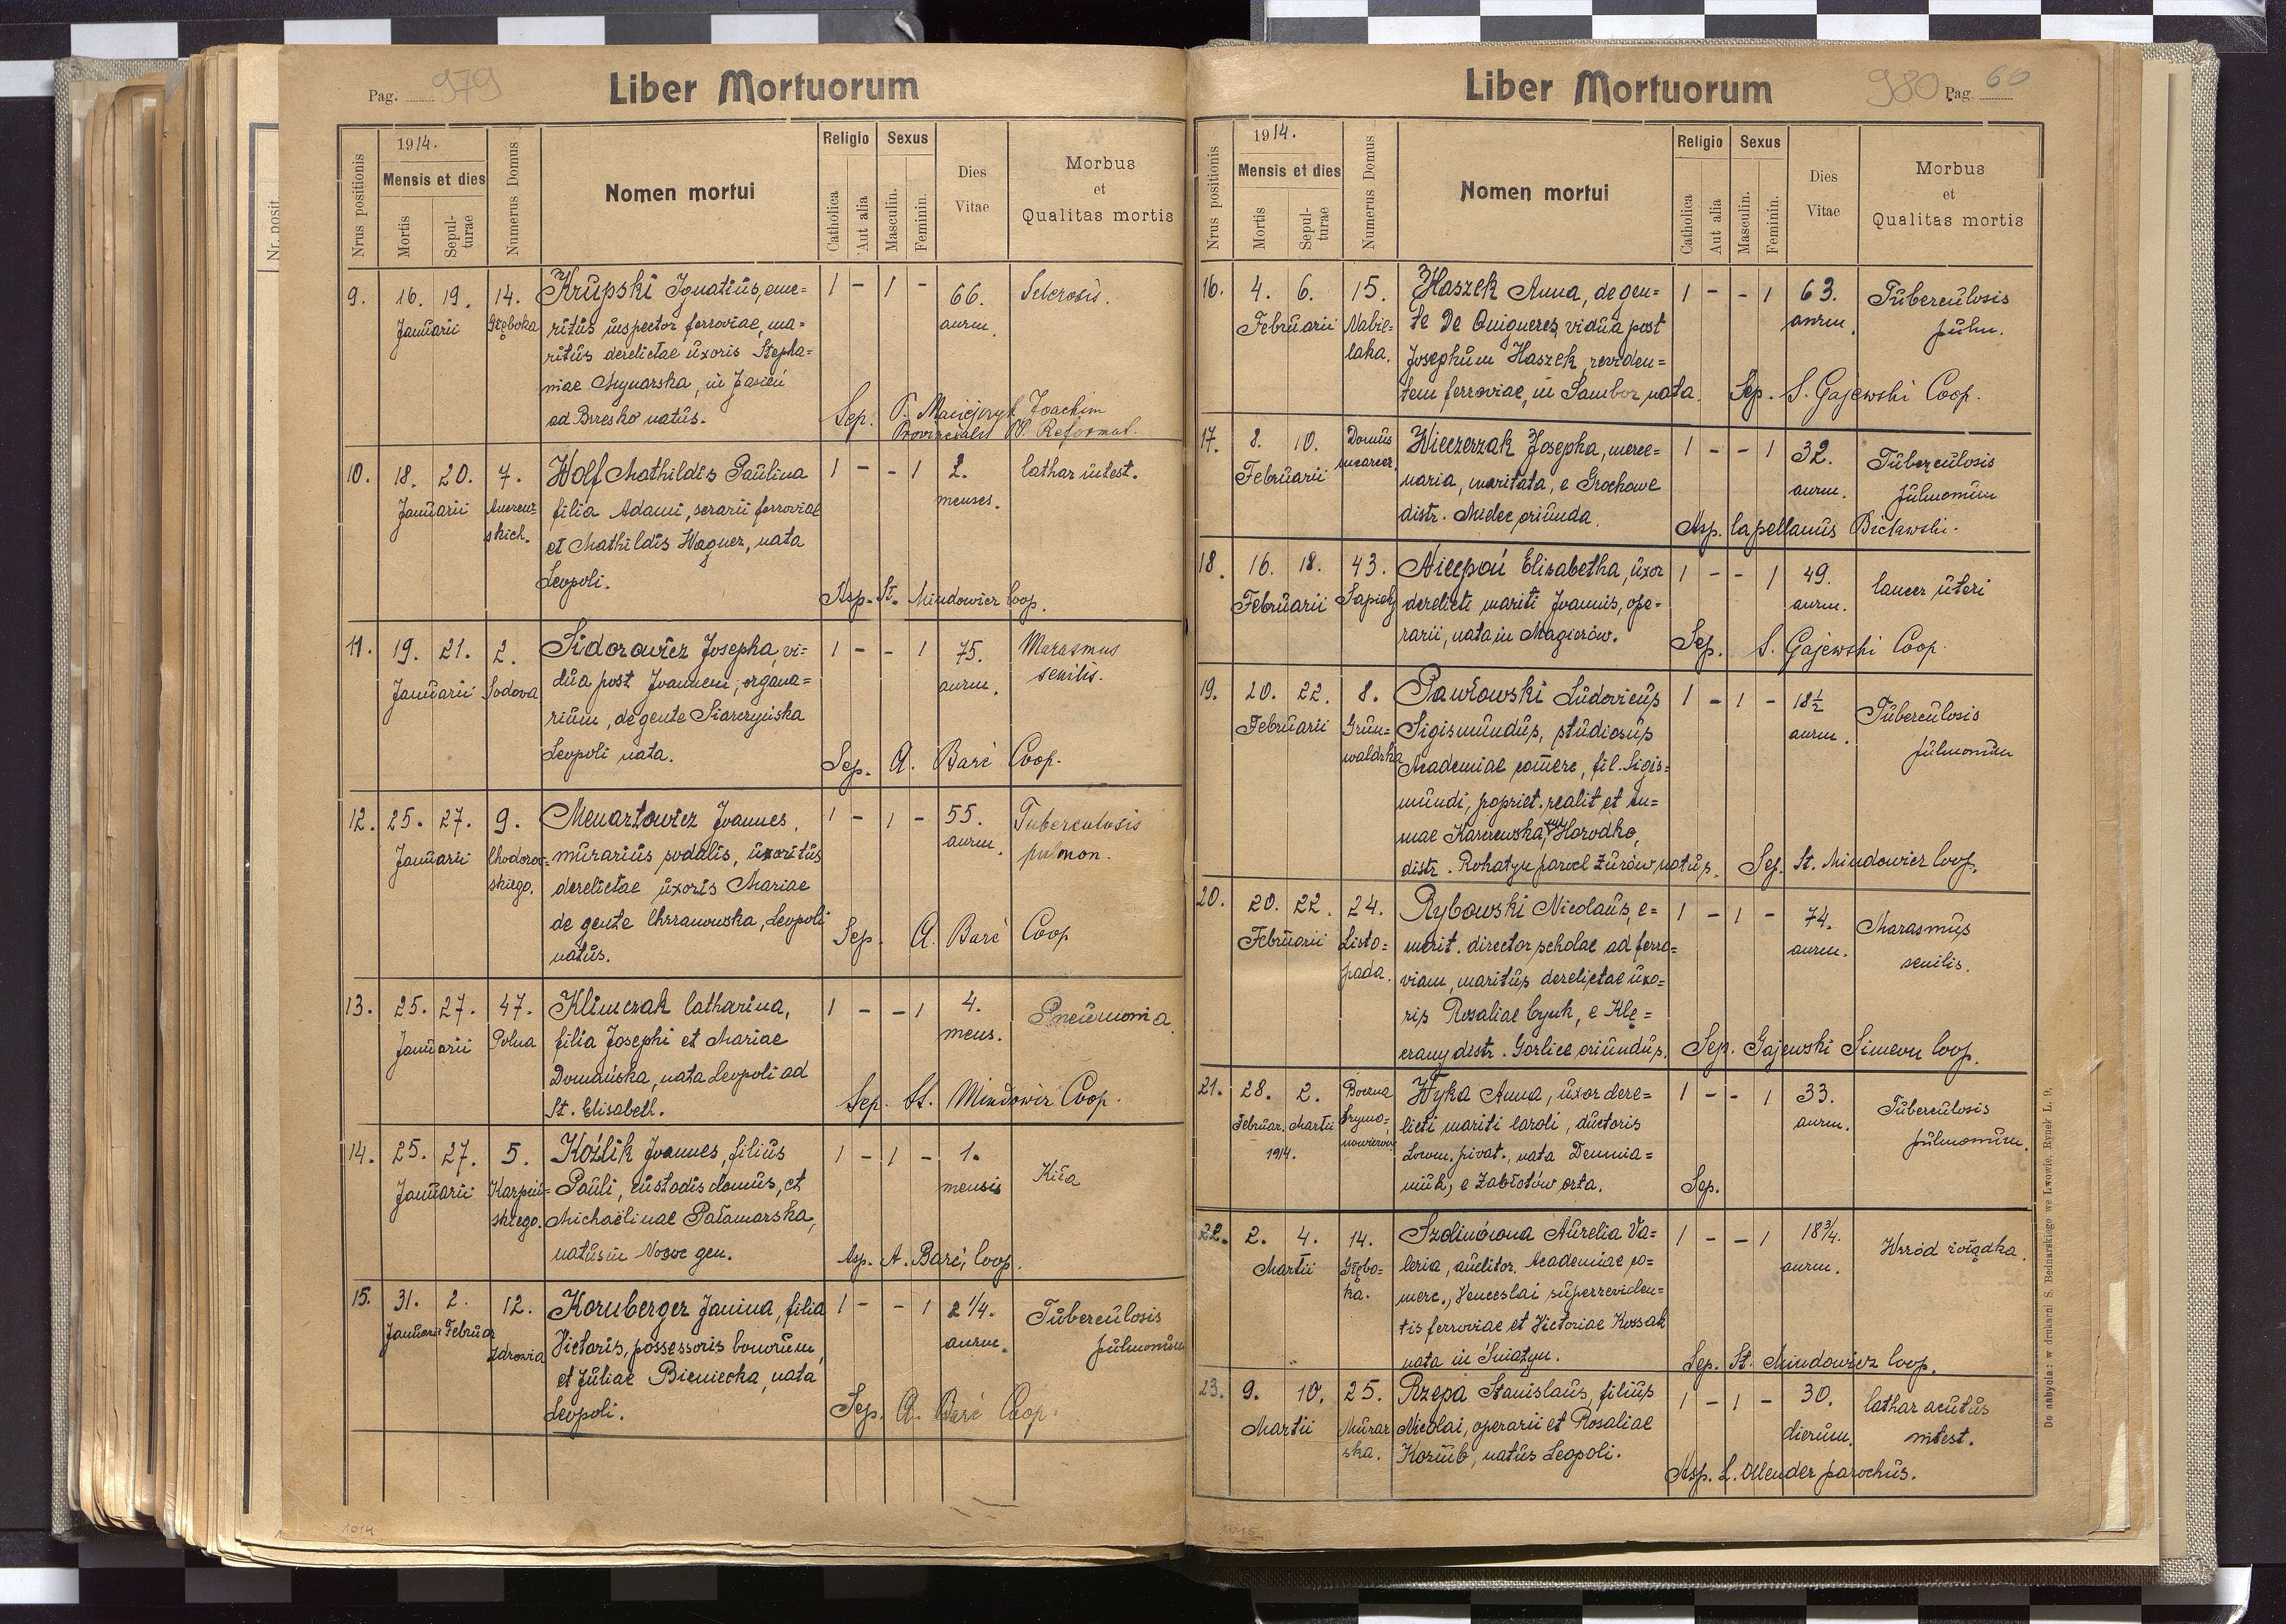 Pag. 979
Liber Mortuorum
Nrus positionis
1914.
Mensis et dies
Mortis
Sepulturae
Numerus Domus
Nomen mortui
Religio
Catholica
Aut alia
Sexus
Masculin.
Feminin.
Dies Vitae
Morbus et Qualitas mortis
9. 16. 19. 14. Krupski Ignatius, eme= 1 - 1 - 66. Sclerosis.
Januarii Głęboka ritus inspector ferroviae, ma= annr.
ritus derelictae uxoris Stepha=
niae Młynarska, in Jasień
ad Brzesko natus. Sep. P. Maciejczyk Joachim
Provincialis PP. Reformat.
10. 18. 20. 7. Wolf Mathildis Paulina 1 - - 1 2. Cathar intest.
Januarii filia Adami, serarii ferroviae menses.
skich. et Mathildis Wagner, nata
Leopoli. Asp. St. Mindowicz Coop.
11. 19. 21. 2. Sidorowicz Josepha, vi= 1 - - 1 75. Marasmus
Januarii Sodova dua post Joannem, organa= annr. senilis.
rium, de gente Siarczyńska
Leopoli nata. Sep. A. Baré Coop.
12. 25. 27. 9. Menartowicz Joannes, 1 - 1 - 55. Tuberculosis
Januarii Chodorow= murarius sodalis, uxoritus annr. pulmon.
skiego. derelictae uxoris Mariae
de gente Chrzanowska, Leopoli
natus. Sep. A. Baré Coop
13. 25. 27. 47. Klimczak Catharina, 1 - - 1 4. Pneumonia
Januarii Polna filia Josephi et Mariae mens.
Domańska, nata Leopoli ad
St. Elisabeth. Sep. St. Mindowicz Coop.
14. 25. 27. 5. Koźlik Joannes, filius 1 - 1 - 1. Kiła
Januarii Karpiń= Pauli, custodis domus, et mensis
skiego. Michaëlinae Pałamarska,
natus in Nosoc. gen. Asp. A. Baré, Coop.
15. 31. 2. 12. Kornberger Janina, filia 1 - - 1 2 1/4. Tuberculosis
Januarii Februar Zdrowia Victoris, possessoris bonorum, annr. pulmonum
et Juliae Bieniecka, nata
Leopoli. Sep. A. Baré Coop.
1014
Liber Mortuorum
980 Pag. 60
Nrus positionis
1914.
Mensis et dies
Mortis
Sepulturae
Numerus Domus
Nomen mortui
Religio
Catholica
Aut alia
Sexus
Masculin.
Feminin.
Dies Vitae
Morbus et Qualitas mortis
16. 4. 6. 15. Haszek Anna, de gen= 1 - - 1 63. Tuberculosis
Februarii Nabie= te De Quigueres, vidua post annr. pulm.
laka. Josephum Haszek, reviden=
tem ferroviae, in Sambor nata. Sep. S. Gajewski Coop.
17. 8. 10. Domus Wieczerzak Josepha, merce= 1 - - 1 32. Tuberculosis
Februarii incarcer. naria, maritata, e Grochowe annr. pulmonum
distr. Mielec oriunda. Asp. Capellanus Bielawski.
18. 16. 18. 43. Niecpoń Elisabetha, uxor 1 - - 1 49. Cancer uteri
Februarii Sapiehy derelicti mariti Joannis, ope= annr.
rarii, nata in Magierów. Sep. S. Gajewski Coop.
19. 20. 22. 8. Pawłowski Ludovicus 1 - 1 - 18 1/2 Tuberculosis
Februarii Grun= Sigismundus, studiosus annr. pulmonum
waldzka Academiae comerc, fil. Sigis=
mundi, propriet. realit et An=
nae Karczewska, in Horodko,
distr. Rohatyn paroch Żurów natus. Sep. St. Mindowicz Coop.
20. 20. 22. 24. Rybowski Nicolaus, e= 1 - 1 - 74. Marasmus
Februarii Listo= merit. director scholae ad ferro= annr. senilis.
pada. viam, maritus derelictae uxo=
ris Rosaliae Cynk, e Klę=
czany distr. Gorlice oriundus. Sep. Gajewski Simeon Coop.
21. 28. 2. Boczna Wyka Anna, uxor dere= 1 - - 1 33. Tuberculosis
Februar. Martii Szymo= licti mariti Caroli, ductoris annr. pulmonum.
1914. nowiczów privat., nata Demnia=
niuk, e Zabłotów orta. Sep.
22. 2. 4. 14. Szolinówna Aurelia Va= 1 - - 1 18 3/4. Wrzód żołądka.
Martii Głębo= leria, auditor. Academiae co= annr.
ka. merc., Venceslai superreviden=
tis ferroviae et Victoriae Kossak
nata in Śniatyn. Sep. St. Mindowicz Coop.
23. 9. 10. 25. Rzepa Stanislaus, filius 1 - 1 - 30. Cathar acutus
Martii Murar Nicolai, operarii et Rosaliae dierum. intest.
ska. Koziub, natus Leopoli.
Asp. L. Ollender parochus.
Do nabycia: w drukarni S. Bednarskiego we Lwowie, Rynek L. 9.
1015
Nr. posit.